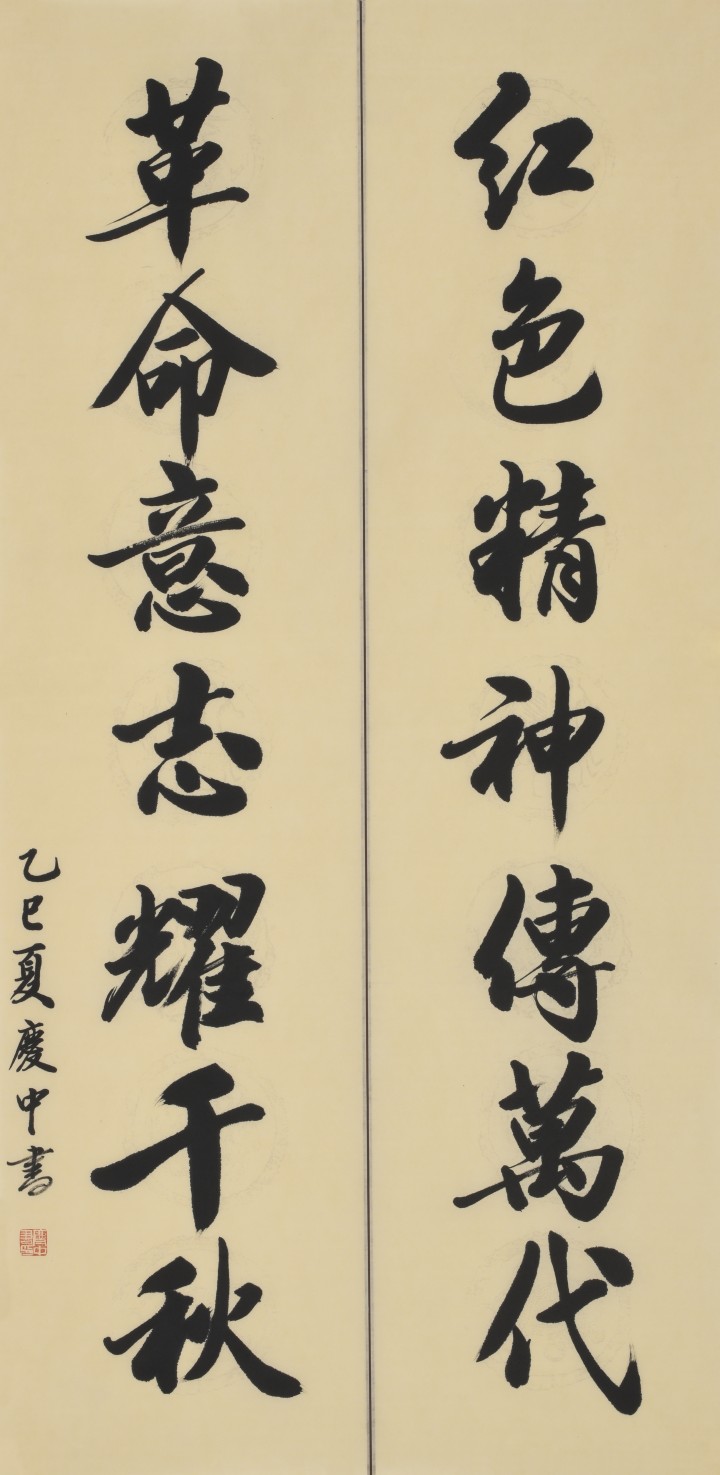 红色精神傳萬代
革命意志耀千秋
乙巳夏慶中書